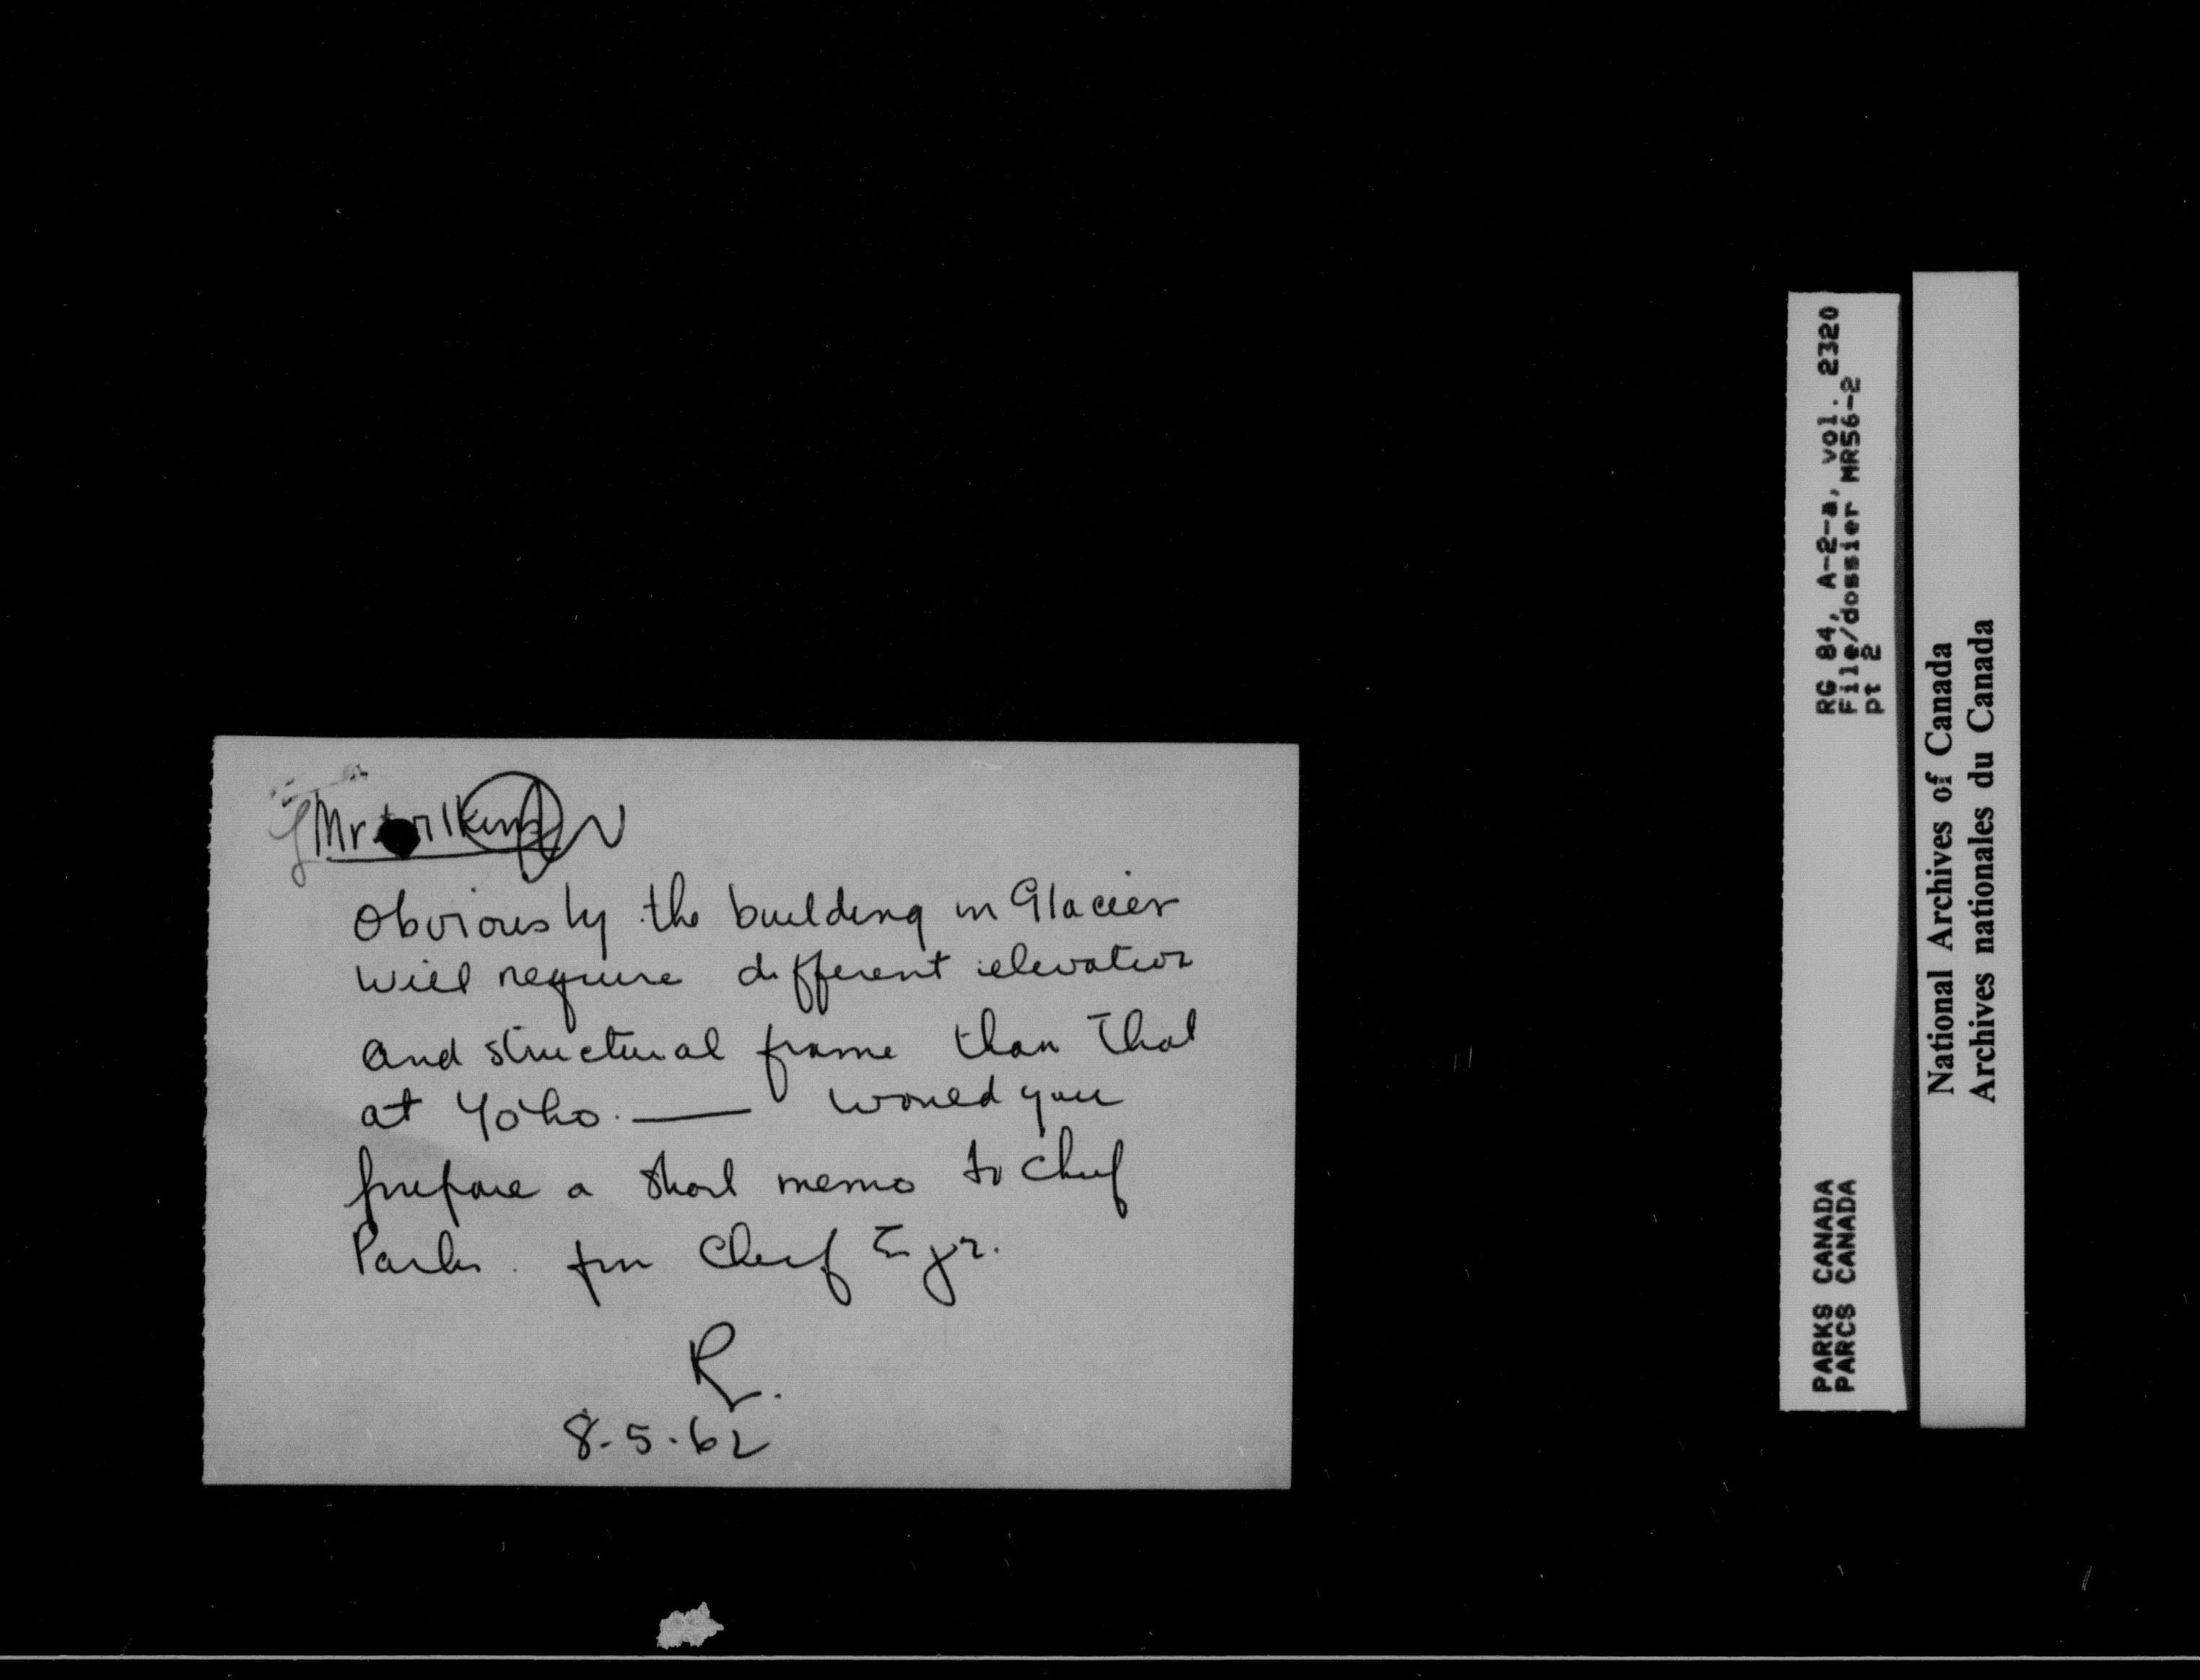 Mr.
Obviously the building in Glacier
will require different elevation
and structural frame than that
at Yoho. — would you
prepare a short memo to Chief
Parks. from Chief Engr.
R.
8-5-62
RG 84, A-2-a, vol. 2320
File/dossier MR56-2
pt 2
PARKS CANADA
PARCS CANADA
National Archives of Canada
Archives nationales du Canada